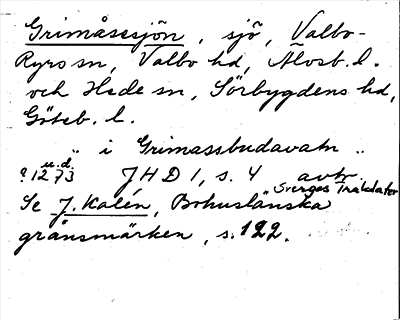 Grimåsesjön, sjö, Valbo-
Ryr sn, Valbo hd, Älvsb. l.
och Hede sn, Sörbygdens hd,
Göteb. l.
"i Grimassbudavatn"
u.d.
?1273 JHD 1, s. 4 avtr.
Sverges Traktater
Se J. Kalén, Bohuslänska
gränsmärken, s. 122.